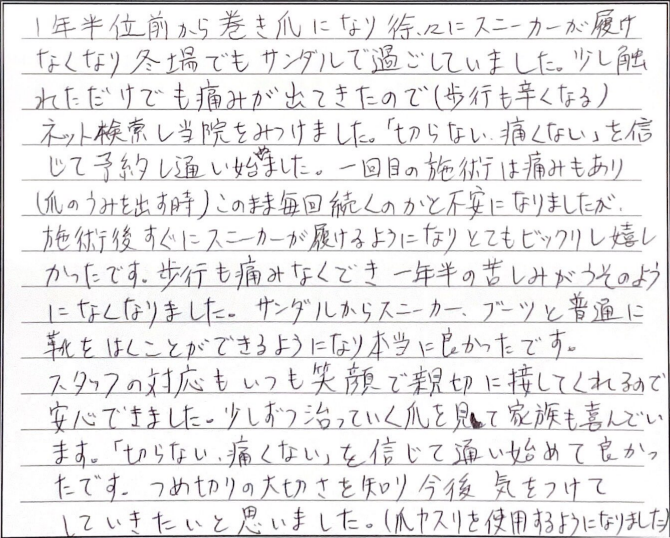 1年半位前から巻き爪になり徐々にスニーカーが履け
なくなり冬場でもサンダルで過ごしていました。少し触
れただけでも痛みが出てきたので(歩行も辛くなる)
ネット検索し当院をみつけました。「切らない、痛くない」を信
じて予約し通い始めました。一回目の施術は痛みもあり
(爪のうみを出す時)このまま毎回続くのかと不安になりましたが、
施術後すぐにスニーカーが履けるようになりとてもビックリし嬉し
かったです。歩行も痛みなくでき一年半の苦しみがうそのよう
になくなりました。サンダルからスニーカー、ブーツと普通に
靴をはくことができるようになり本当に良かったです。
スタッフの対応もいつも笑顔で親切に接してくれるので
安心できました。少しずつ治っていく爪を見て家族も喜んでい
ます。「切らない、痛くない」を信じて通い始めて良かっ
たです。つめ切りの大切さを知り今後気をつけて
していきたいと思いました。(爪ヤスリを使用するようになりました)